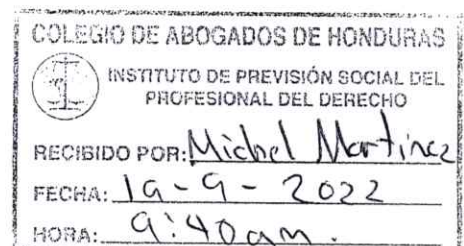 COLEGIO DE ABOGADOS DE HONDURAS
INSTITUTO DE PREVISIÓN SOCIAL DEL
PROFESIONAL DEL DERECHO
RECIBIDO POR: Michel Martinez
FECHA: 19-9-2022
HORA: 9:40am.